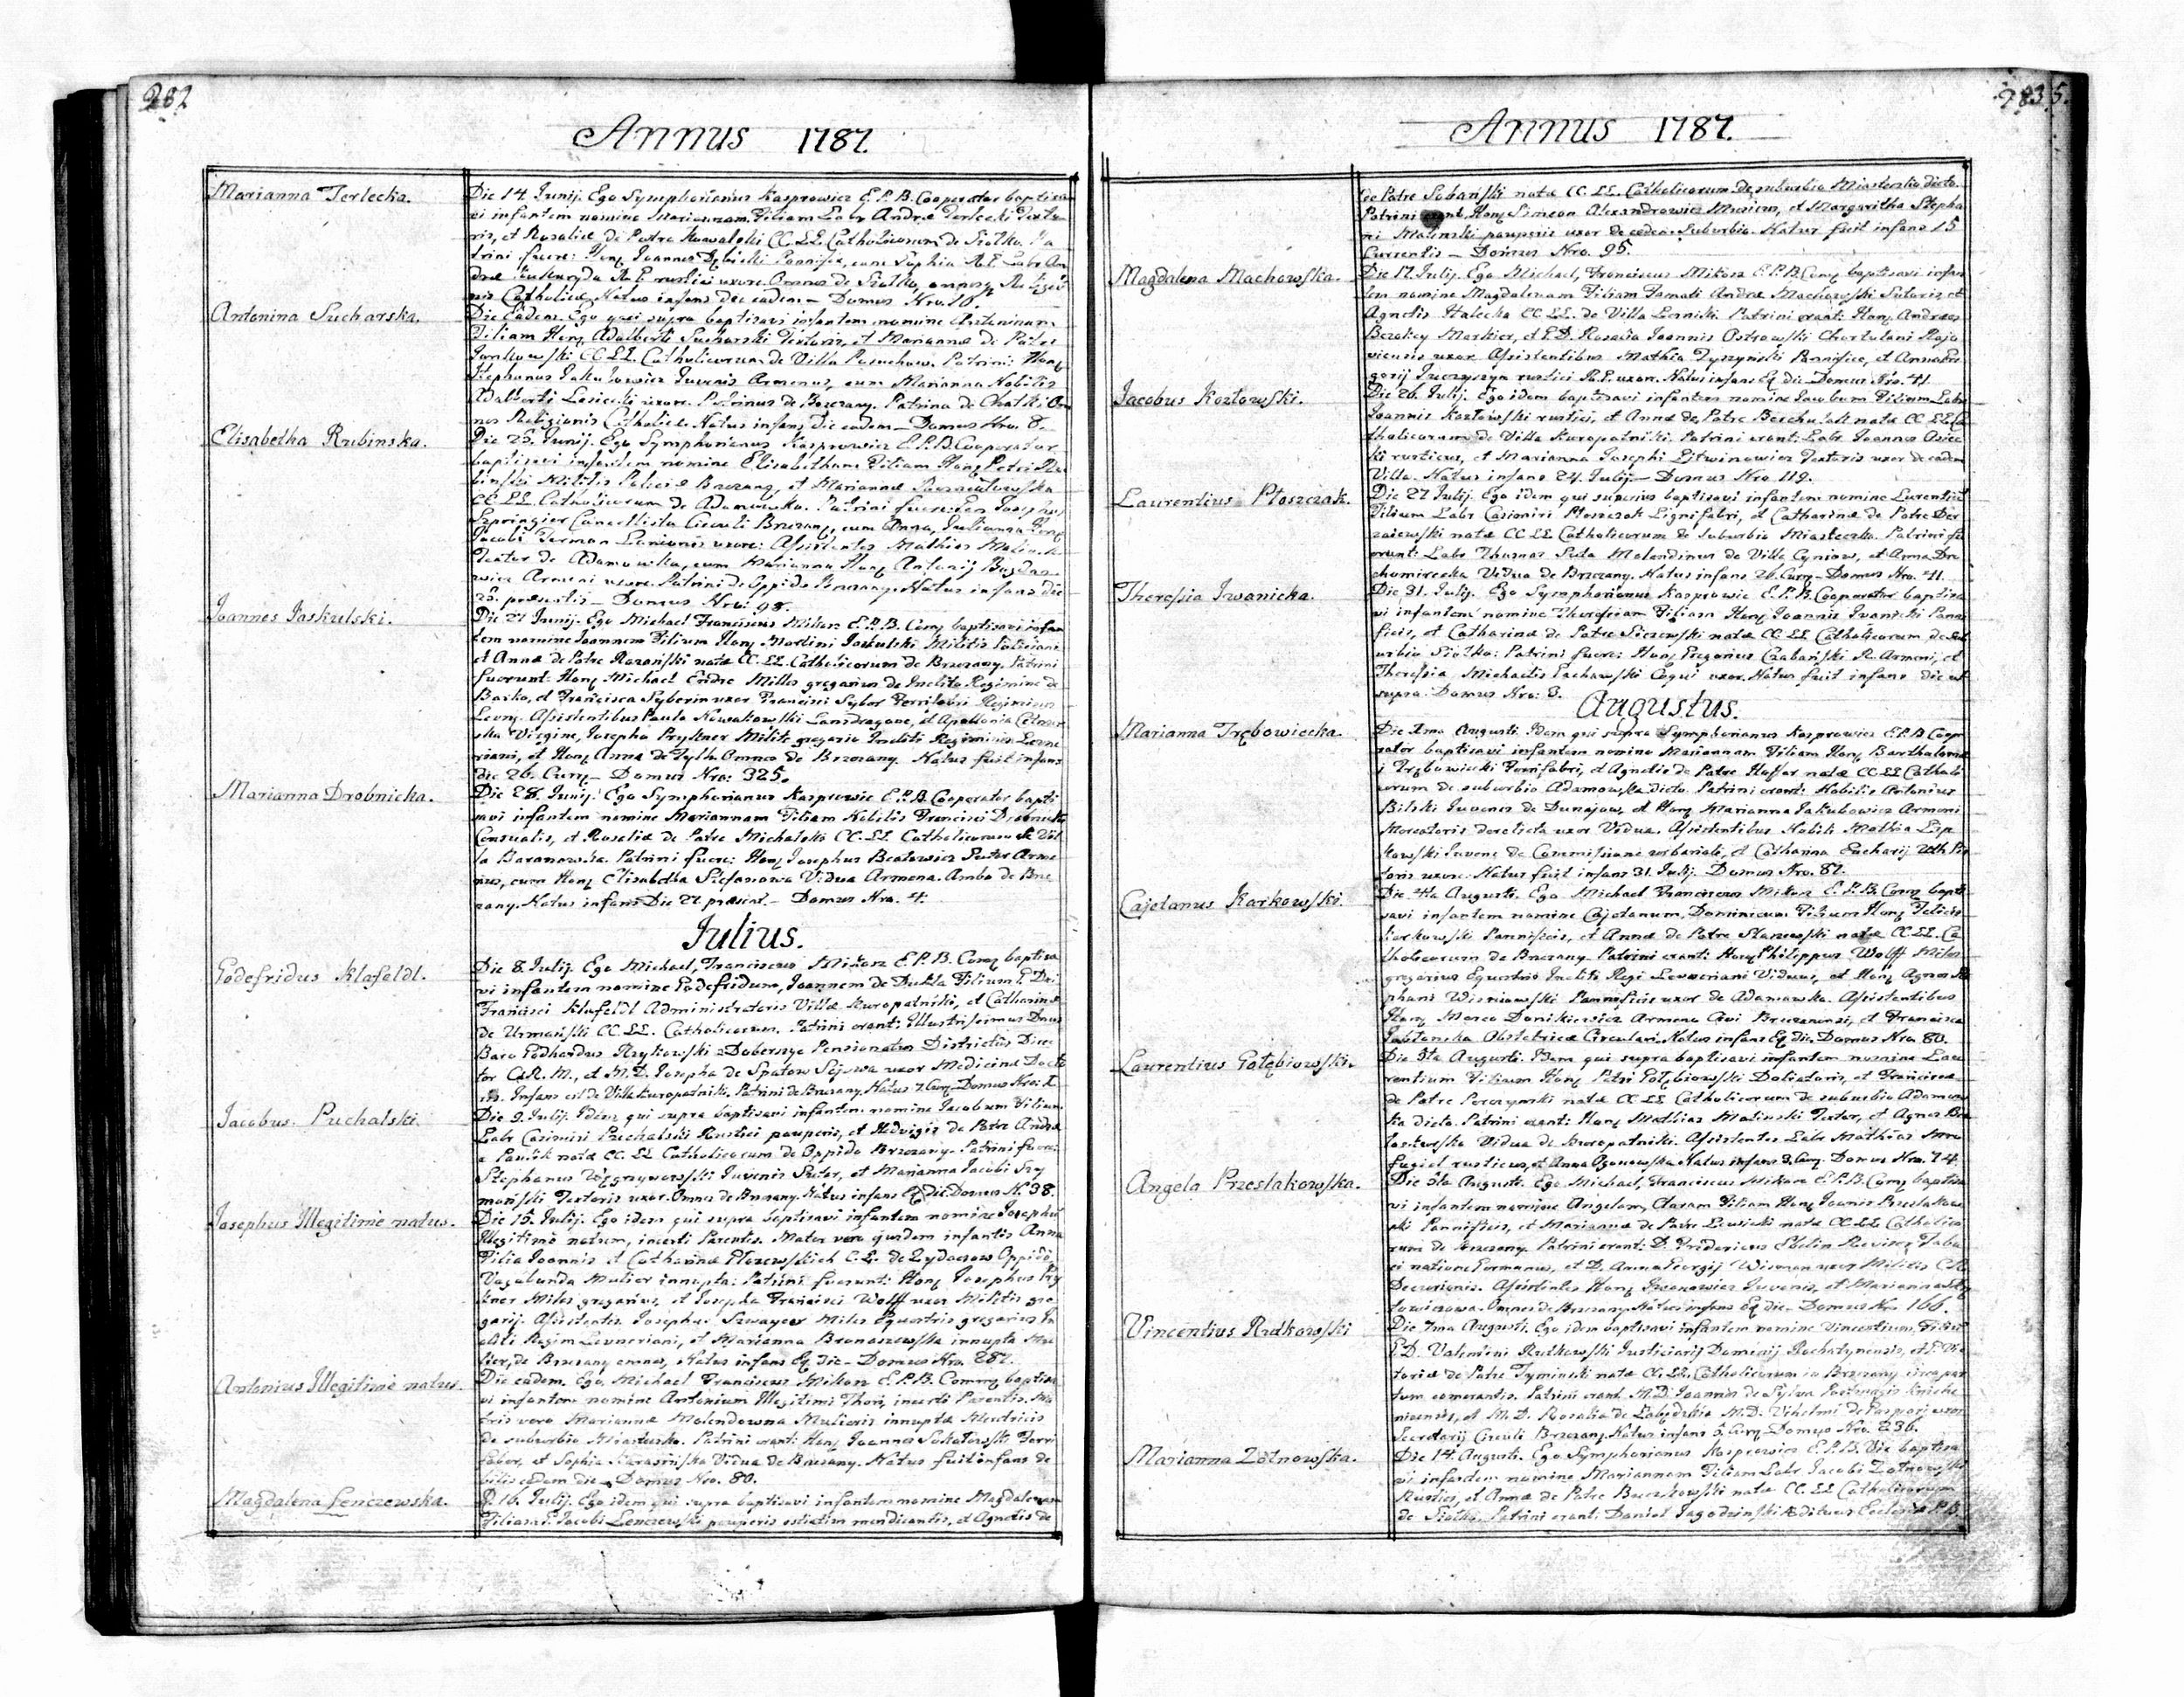 282
Annus 1787.
Marianna Terlecka.
Die 14. Junij. Ego Symphorianus Kasprowicz E.P.B. Cooperator baptisa
vi infantem nomine Mariannam Filiam Labr Andreæ Terlecki Texto
ris, et Rosaliæ de Patre Kowalski CC.LL. Catholicorum de Siolko. Pa
trini fuere: Hon Joannes Dębicki Pannifex, cum Sophia
rustici uxore. Omnes de Siolko,
nis Catholicæ. Natus infans die eadem – Domus Nro. 10.
Antonina Sucharska.
Die Eadem. Ego qui supra baptisavi infantem nomine Antoninam
Filiam Hon Adalberti Sucharski Textoris, et Mariannæ de Patre
Jankowski CC.LL. Catholicorum de Villa Posuchow. Patrini: Hon
Stephanus Jakubowicz Juvenis Armenus, cum Marianna Nobilis
Adalberti Losiecki uxore. Patrinus de Brzezany. Patrina de Chatki Om
nes Religionis Catholicæ. Natus infans die eadem – Domus Nro. 8.
Elisabetha Rubinska.
Die 25. Junij. Ego Symphorianus Kasprowicz E.P.B. Cooperator
baptisavi infantem nomine Elisabetham Filiam Hon Petri Ru
binski Militis Brzezany, et Mariannæ
CC.LL. Catholicorum de Adamowka. Patrini fuere: Josephus
Szpringier Cancellista Circuli Brzezany, cum Anna, Julianna Hon
Jacobi Terman Lanionis uxore: Assistentes Mathias
Textor de Adamowka, cum Marianna Hon Antonij Bogdan
wicz Armeni uxore. Patrini de Oppido Brzezany. Natus infans die
25. præsentis – Domus Nro: 98.
Joannes Jaskulski.
Die 27 Junij. Ego Michael Franciscus Mikosz E.P.B. Com baptisavi infan
tem nomine Joannem Filium Hon Martini Jaskulski Militis
et Annæ de Patre Razański natæ CC.LL. Catholicorum de Brzezany. Patrini
fuerunt: Hon Michael Endre Milles gregarius de Inclito Regimine de
Barko, et Francisca Syberin uxor Francisci Syber Regiminis
Levny. Assistentibus Paulo Nowakowski et Apollonia
ska Virgine, Josepho Prykner Milite gregario Incliti Regiminis Levne
riani, et Hon Anna de Omnes de Brzezany. Natus fuit infans
die 26. Curr – Domus Nro: 325.
Marianna Drobnicka.
Die 28. Junij. Ego Symphorianus Kasprowic E.P.B. Cooperator bapti
savi infantem nomine Mariannam Filiam Nobilis Francisci Drobnicki
Censualis, et Rosaliæ de Patre Michalski CC.LL. Catholicorum de Vil
la Baranowka. Patrini fuere: Hon Josephus Beatowicz Sutor Arme
nus, cum Hon Elisabetha Stefanowa Vidua Armena. Ambo de Brze
zany. Natus infans Die 27 præsent. – Domus Nro. 4.
Julius.
Godefridus Klafeldl.
Die 8. Julij. Ego Michael, Franciscus Mikosz E.P.B. Com baptisa
vi infantem nomine Godefridum, Joannem de Dukla Filium
Francisci Klafeldl Administratoris Villæ Kuropatniki, et Catharinæ
de Urmański CC.LL. Catholicorum. Patrini erant: Illustrissimus Dnus
Baro Godhardus Pensionatus Districtûs Direc
tor C.R.M., et M.D. Josepha de Spatow uxor Medicinæ Docto
ris. Infans est de Villa Kuropatniki. Patrini de Brzezany. Natus 7. Curr – Domus Nro: 1.
Jacobus Puchalski
Die 9. Julij. Idem qui supra baptisavi infantem nomine Jacobum Filium
Labr Casimiri Puchalski Rustici pauperis, et Hedvigis de Patre Andre
natæ CC.LL Catholicorum de Oppido Brzezany. Patrini fuere:
Stephanus Węgrzynowski Juvenis Sutor, et Marianna Jacobi Szy
mański Textoris uxor. Omnes de Brzezany. Natus infans Eq die. Domus N. 38.
Josephus Illegitimè natus.
Die 15. Julij. Ego idem qui supra baptisavi infantem nomine Josephum
Illegitimè natum, incerti Parentis. Mater vero ejusdem infantis Anna
Filia Joannis et Catharinæ C.L. de Zydaczow Oppido
Vagabunda Mulier innupta: Patrini fuerunt: Hon Josephus Pry
kner Miles gregarius, et Josepha Francisci Wolff uxor Militis gre
garij. Assistentes Josephus Szwayeer Miles Equestris gregarius In
cliti Regim Levneriani, et Marianna Bronaszewska innupta Mu
lier, de Brzezany omnes, Natus infans Eq die – Domus Nro. 287.
Antonius Illegitimè natus.
Die eadem. Ego, Michael Franciscus Mikosz E.P.B. Comm baptisa
vi infantem nomine Antonium Illegitimi Thori, incerti Parentis. Ma
tris vero Mariannæ Malendowna Mulieris innuptæ Meretricis
de suburbio Miasteczko. Patrini erant: Hon Joannes Sokołowski Ferri
faber, et Sophia Vidua de Brzezany. Natus fuit infans de
bilis eadem die – Domus Nro. 80.
Magdalena Lenczewska.
D. 16. Julij. Ego idem qui supra baptisavi infantem nomine Magdalenam
Filiam Jacobi Lenczewski pauperis ostiatim mendicantis, et Agnetis de
283 5.
Annus 1787.
de Patre Sobański natæ CC.LL. Catholicorum de suburbio Miasteczko dicto.
Patrini erant, Hon Simeon Alexandrowicz Musicus, et Margaritha Stepha
ni Malinski pauperis uxor de eodem Suburbio. Natus fuit infans 15
Currentis – Domus Nro. 95.
Magdalena Machowska.
Die 17. Julij. Ego Michael, Franciscus Mikosz E.P.B. Com baptisavi infan
tem nomine Magdalenam Filiam Famati Andreæ Machowski Sutoris, et
Agnetis Halecka CC.LL. de Villa Lesniki. Patrini erant: Hon Andreas
Merkier, et P.D. Rosalia Joannis Ostrowski
viensis uxor. Assistentibus Mathia Tyszyński Pannifice, et Anna Gre
gorij rustici uxor. Natus infans Eq die – Domus Nro. 41.
Jacobus Kozłowski.
Die 26. Julij. Ego idem baptisavi infantem nomine Jacobum Filium Labr
Joannis Kozłowski rustici, et Annæ de Patre natæ CC LL Ca
tholicorum de Villa Kuropatniki. Patrini erant: Labr. Joannes Osiec
ki rusticus, et Marianna Josephi Litwinowicz Textoris uxor de eadem
Villa. Natus infans 24. Julij – Domus Nro. 119.
Laurentius Ptoszczak.
Die 27 Julij. Ego idem qui superius baptisavi infantem nomine Laurentium
Filium Labr Casimiri Ptoszczak Lignifabri, et Catharinæ de Patre Der
zaiewski natæ CC LL Catholicorum de Suburbio Miasteczko. Patrini fu
erunt: Labr Thomas Suta Molendinus de Villa Cyniow, et Anna Dru
chomirecka Vidua de Brzezany. Natus infans 26. Curr – Domus Nro. 41.
Theressia Iwanicka.
Die 31. Julij. Ego Symphorianus Kasprowic E.P.B. Cooperator baptisa
vi infantem nomine Theressiam Filiam Hon Joannis Iwanicki Panni
ficis, et Catharinæ de Patre Siczewski natæ CC LL Catholicorum de Sub
urbio Siolko: Patrini fuere: Hon Gregorius Czabański R. Armeni, et
Theressia Michaelis Pachowski Coqui uxor. Natus fuit infans die ut
supra. Domus Nro: 3.
Augustus.
Marianna Trębowiecka.
Die 1ma Augusti. Idem qui supra Symphorianus Kasprowicz E.P.B. Coope
rator baptisavi infantem nomine Mariannam Filiam Hon Bartholomæ
i Trębowiecki Ferrifabri, et Agnetis de Patre Hoffer natæ CC LL Catholi
corum de suburbio Adamowka dicto. Patrini erant: Nobilis Antonius
Bilski Juvenis de Dunajow, et Hon Marianna Jakubowicz Armeni
Mercatoris derelicta uxor Vidua. Assistentibus Nobili Mathia Lip
kowski Juvene de Commissione urbariali, et Catharina Eucharij
toris uxore. Natus fuit infans 31. Julij. Domus Nro. 82.
Cajetanus Karkowski.
Die 4ta Augusti. Ego Michael Franciscus Mikosz E.P.B. Com bapti
savi infantem nomine Cajetanum, Dominicum Filium Hon Felicis
Karkowski Pannificis, et Annæ de Patre Stanewski natæ CC.LL. Ca
tholicorum de Brzezany. Patrini erant: Hon Philippus Wolff Miles
gregarius Equestris Incliti Regi Levneriani Viduus, et Hon Agnes Ste
phani Wisniowski Pannificis uxor de Adamowka. Assistentibus
Hon Marco Donikiewicz Armeno Civi Brzezanensi, et Francisca
Jabłonska Obstetrice Circulari. Natus infans Eq die. Domus Nro. 80.
Laurentius Gołębiowski.
Die 5ta Augusti. Idem qui supra baptisavi infantem nomine Lau
rentium Filium Hon Petri Gołębiowski Doliatoris, et Franciscæ
de Patre natæ CC LL Catholicorum de suburbio Adamow
ka dicto. Patrini erant: Hon Mathias Malinski Textor, et Agnes
Vidua de Kuropatniki. Assistentes Labr Mathias
rusticus, et Anna Ozonowska. Natus infans 3. Curr. Domus Nro. 74.
Angela Przeslakowska.
Die 5ta Augusti. Ego Michael, Franciscus Mikosz E.P.B. Com baptisa
vi infantem nomine Angelam, Claram Filiam Hon Joannis Przeslakow
ski Pannificis, et Mariannæ de Patre Lewicki natæ CC LL Catholico
rum de Brzezany. Patrini erant: D. Fridericus Ebelin Revisor Taba
ci natione Germanus, et D. Anna Georgij Wisman uxor Militis
Decurionis. Assistentes Hon Juvenis, et Marianna
Omnes de Brzezany. Natus infans Eq die – Domus No. 166.
Vincentius Rutkowski
Die 7ma Augusti. Ego idem baptisavi infantem nomine Vincentium, Filium
P.D. Valentini Rutkowski Justiciarij Dominij Rochatynensis, et Vic
toriæ de Patre Tyminski natæ CC.LL. Catholicorum in Brzezany
tum comorantis. Patrini erant M.D. Joannes de Sylva
niensis, et M.D. Rosalia de M.D. Vilhelmi de uxor
Secretarij Circuli Brzezany. Natus infans 5. Curr – Domus Nro. 236.
Marianna Zotnowska.
Die 14. Augusti. Ego Symphorianus Kasprowicz E.P.B. Vic baptisa
vi infantem nomine Mariannam Filiam Labr Jacobi Zotnowski
Rustici, et Annæ de Patre Buczkowski natæ CC.LL Catholicorum
de Siolko. Patrini erant: Daniel Jagodzinski Ædituus Ecclesiæ P.B.